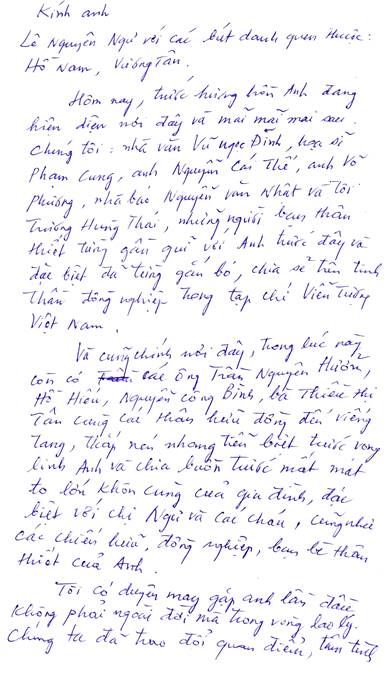 Kính anh
Lê Nguyên Ngư với các bút danh quen thuộc:
Hồ Nam, Vương Tân.
Hôm nay, trước hương hồn Anh đang
hiện diện nơi đây và mãi mãi mai sau.
Chúng tôi: nhà văn Vũ Ngọc Đĩnh, họa sĩ
Phạm Cung, anh Nguyễn Cái Thế, anh Võ
Phương, nhà báo Nguyễn văn Nhật và Tôi
Trương Hưng Thái, những người bạn thân
thiết từng gần gũi với Anh trước đây và
đặc biệt đã từng gắn bó, chia sẻ trên tinh
thần đồng nghiệp trong tạp chí Viễn Tượng
Việt Nam.
Và cũng chính nơi đây, trong lúc này
còn có các ông Trần Nguyên Hườn,
Hồ Hiếu, Nguyễn công Bình, bà Thiều Thị
Tân cùng các thân hữu đồng đến viếng
tang, thắp nén nhang tiễn biệt trước vong
linh Anh và chia buồn trước mất mát
to lớn khôn cùng của gia đình, đặc
biệt với chị Ngư và các cháu, cũng như
các chiến hữu, đồng nghiệp, bạn bè thân
thiết của Anh.
Tôi có duyên may gặp anh lần đầu
không phải ngoài đời mà trong vòng lao lý.
Chúng ta đã trao đổi quan điểm, tâm tình